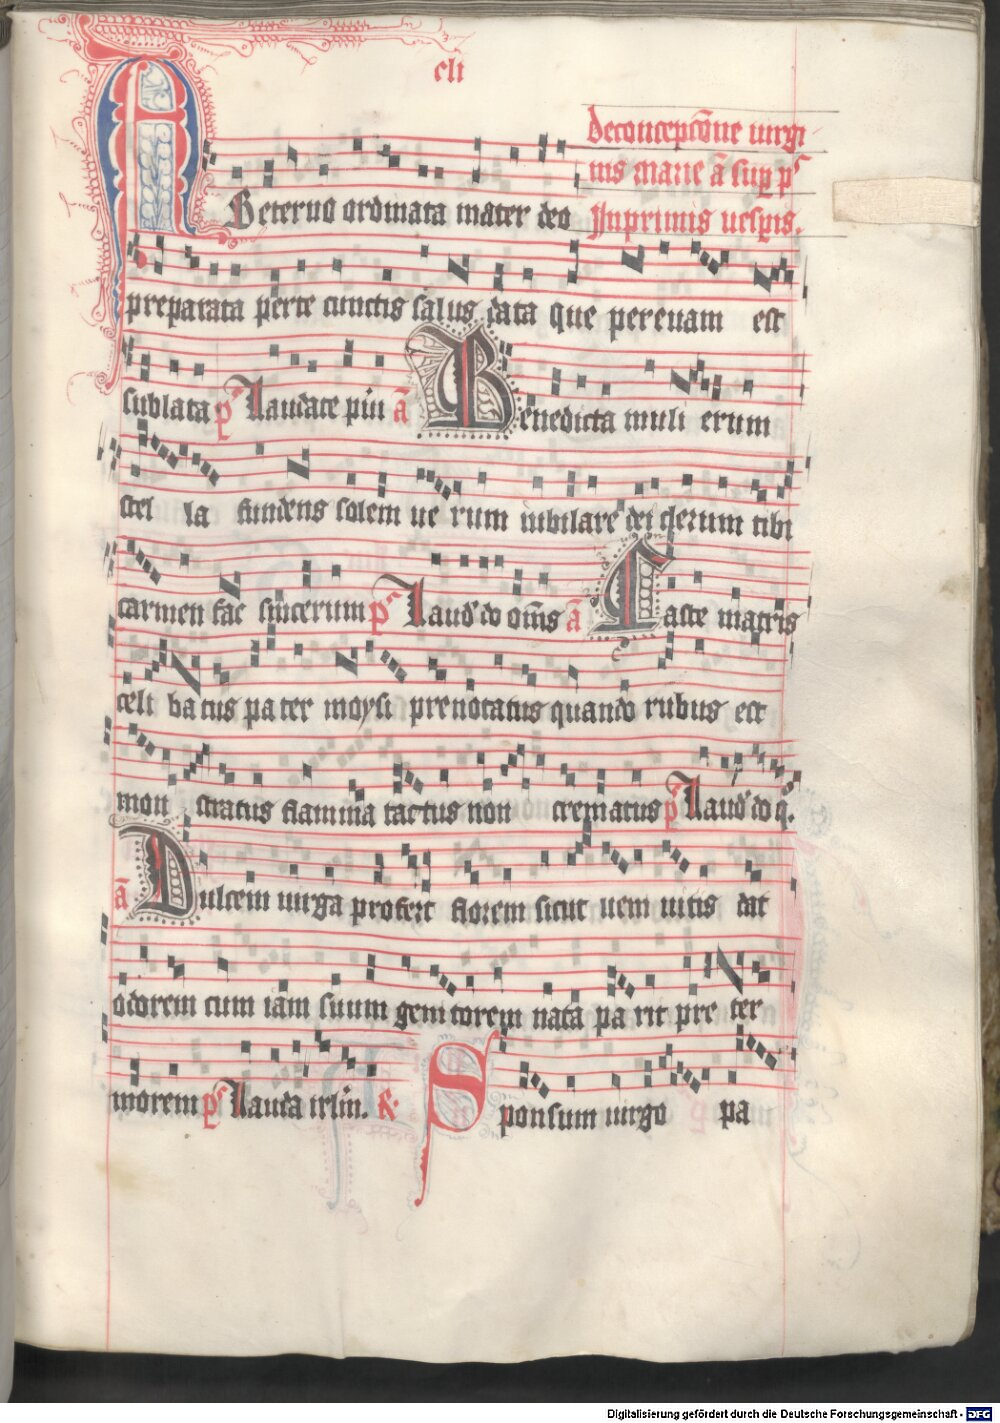 cli
deconcepcōne uirgi
nis marie ā sup ps
Inprimis uespis.
ABeterno ordinata mater deo
preparata perte cunctis salus data que per euam est
sublata ps Laudate pūi ā Benedicta muli erum
stel la fundens solem ue rum iubilare dei clerum tibi
carmen fac sincerum ps Laud do om̄s ā Caste matris
celi vatus pa ter moysi prenotatus quando rubus est
mon stratus flamma tactus non crematus ps Laud do q.
ā Dulcem uirga profert florem sicut uem uitis dat
odorem cum iam suum genitorem nata pa rit pre ter
morem ps Lauda irlm. R Sponsum uirgo pa
Digitalisierung gefördert durch die Deutsche Forschungsgemeinschaft - DFG